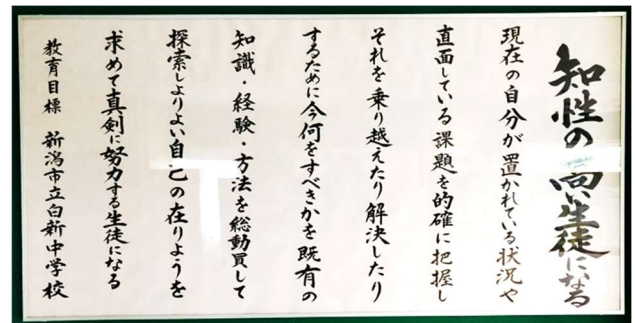 知性の高い生徒になる
現在の自分が置かれている状況や
直面している課題を的確に把握し
それを乗り越えたり解決したり
するために今何をすべきかを既有の
知識・経験・方法を総動員して
探索しよりよい自己の在りようを
求めて真剣に努力する生徒になる
教育目標 新潟市立白新中学校